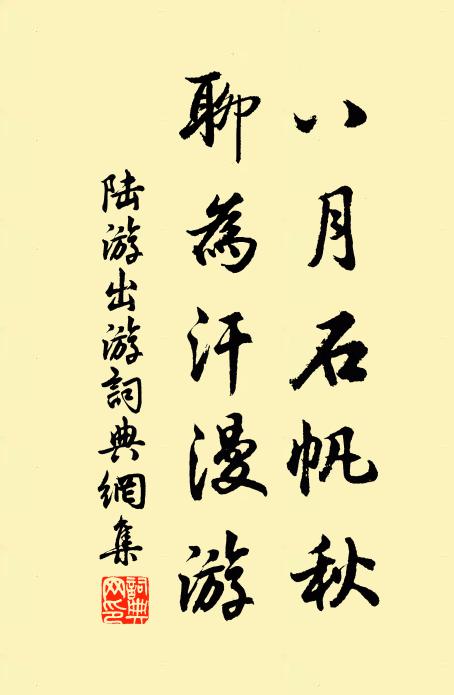 八月石帆秋
聊為汗漫游
陆游出游詞典網集
詞典網印